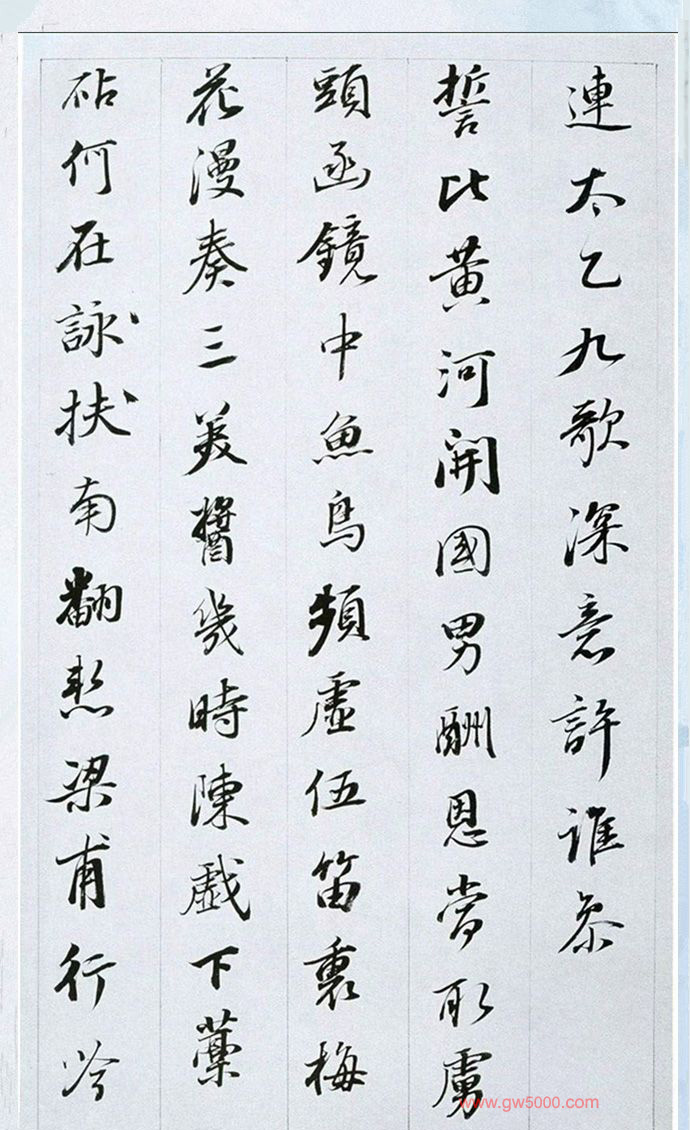 連太乙九歌深意許誰參
誓比黃河開國男酬恩當取虜
頭函鏡中魚鳥頻虛伍笛裏梅
花漫奏三美醬幾時陳戲下藁
砧何在詠扶南翻愁梁甫行吟
www.gw5000.com